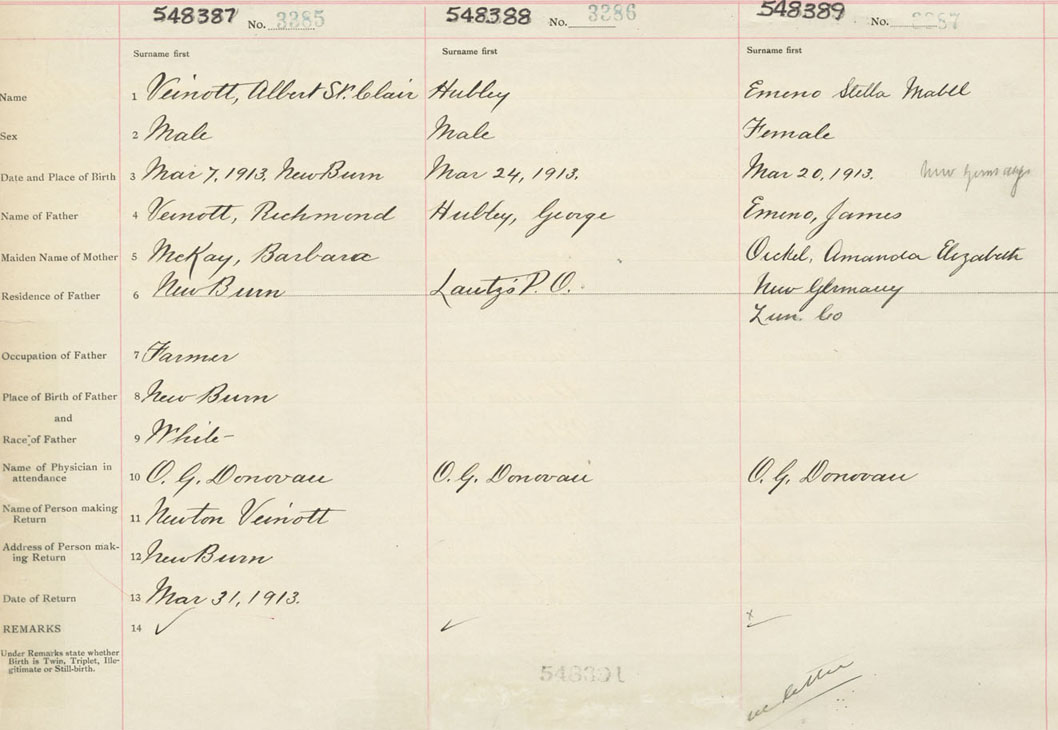 548387 No. 3385 548388 No. 3386 548389 No. 3387
Surname first Surname first Surname first
Name 1 Veinott, Albert St. Clair Hubley Emeno Stella Mabel
Sex 2 Male Male Female
Date and Place of Birth 3 Mar 7, 1913, New Burn Mar 24, 1913. Mar 20, 1913. New Germany
Name of Father 4 Veinott, Richmond Hubley, George Emeno, James
Maiden Name of Mother 5 McKay, Barbara Oickel, Amanda Elizabeth
Residence of Father 6 New Burn Lantz's P.O. New Germany
Lun. Co
Occupation of Father 7 Farmer
Place of Birth of Father 8 New Burn
and
Race of Father 9 White
Name of Physician in
attendance 10 O. G. Donovan O. G. Donovan O. G. Donovan
Name of Person making
Return 11 Newton Veinott
Address of Person mak-
ing Return 12 New Burn
Date of Return 13 Mar 31, 1913.
REMARKS 14 ✓ ✓ x
Under Remarks state whether
Birth is Twin, Triplet, Ille-
gitimate or Still-birth.
548391
letter